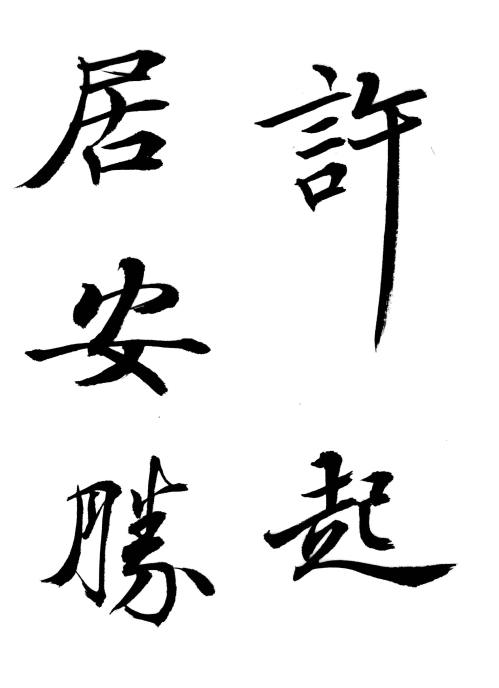 許起
居安勝